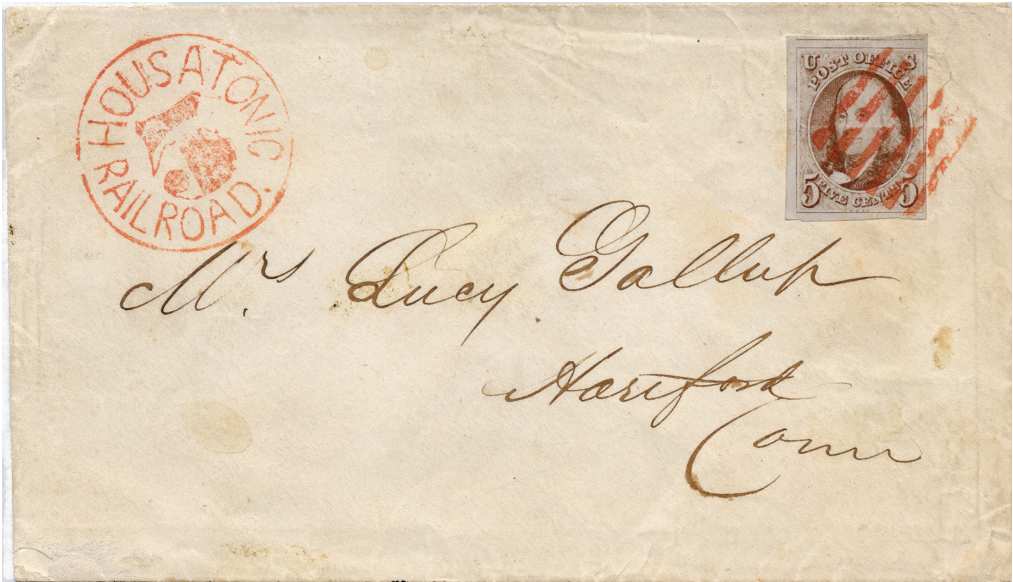 HOUSATONIC
RAILROAD.
5
U S
POST OFFICE
5 FIVE CENTS 5
Mrs. Lucy Gallup
Hartford
Conn